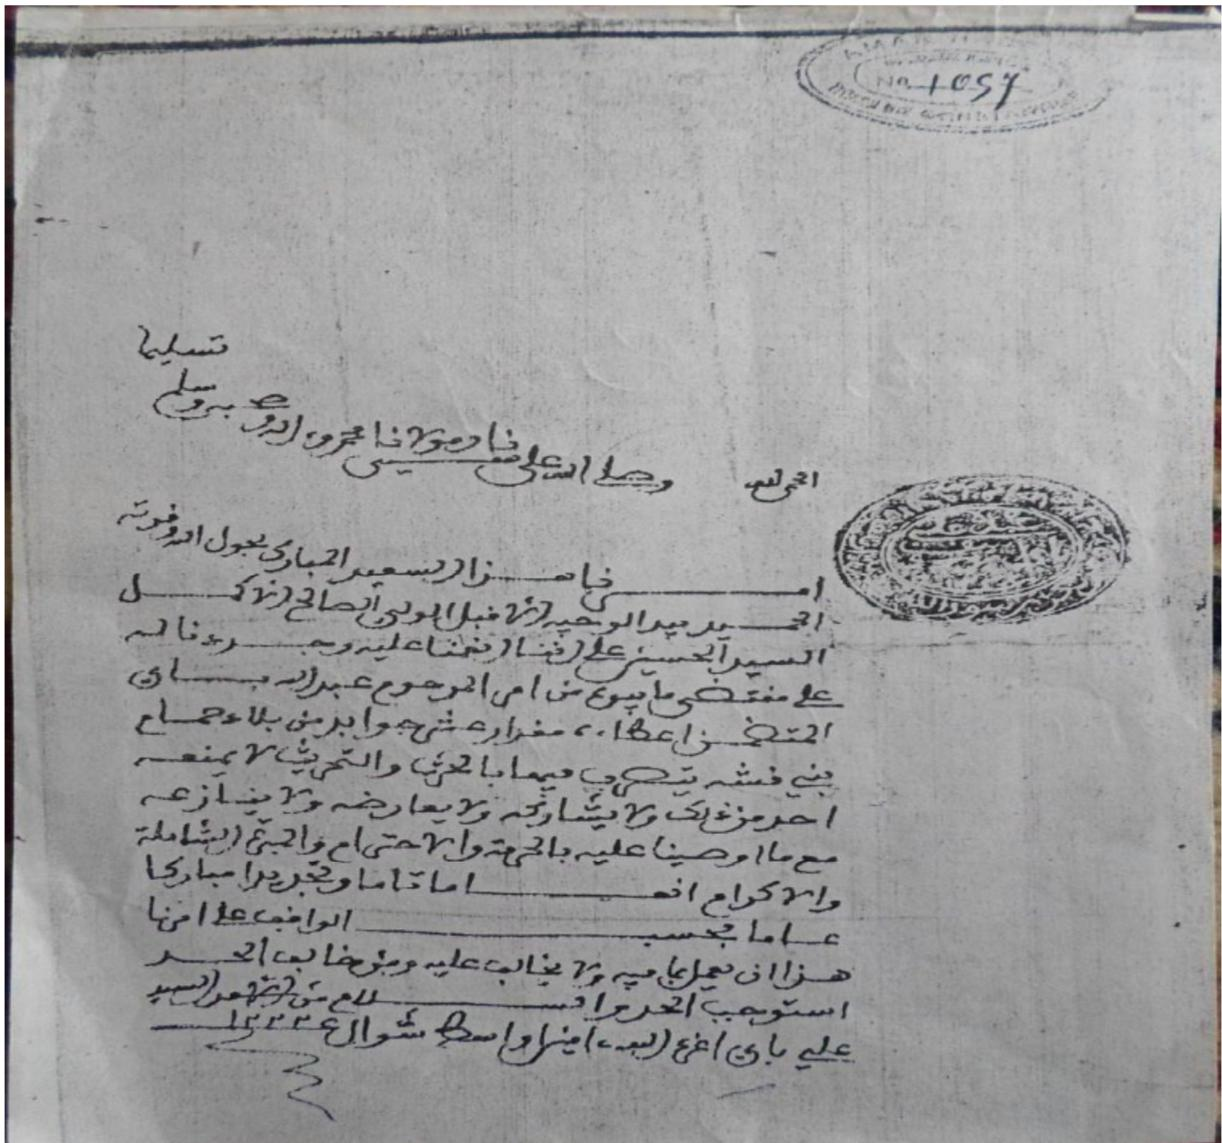 No 1057
تسليما
وسلم
الحمد لله وصلى الله على سيدنا ومولانا محمد وءاله وصحبه
امرنا هذا السعيد المبارك بحول الله وقوته
الحميد بيد الوجيه الاقبل الولي الصالح الاكمل
السيد الحسين على اننا انعمنا عليه وجددنا له
على مقتضى ما بيده من امر المرحوم عبد الله باي
المتضمن اعطاءه مقدار عشر جوابد من بلاد حمام
بني قشه يتصرف فيها بالحرث والتحريث لا يمنعه
احد من ذلك ولا يشاركه ولا يعارضه ولا ينازعه
مع ما اوصينا عليه بالحرمة والاحترام والمبرة الشاملة
والاكرام انعاما تاما وتجديدا مباركا
عاما بحسب الواقف على امرنا
هذا ان يعمل بما فيه ولا يخالف عليه ومن خالف الحد
استوجب الحد والسلام من السيد
علي باي اعزه الله امين اواسط شوال ١٢٣٣